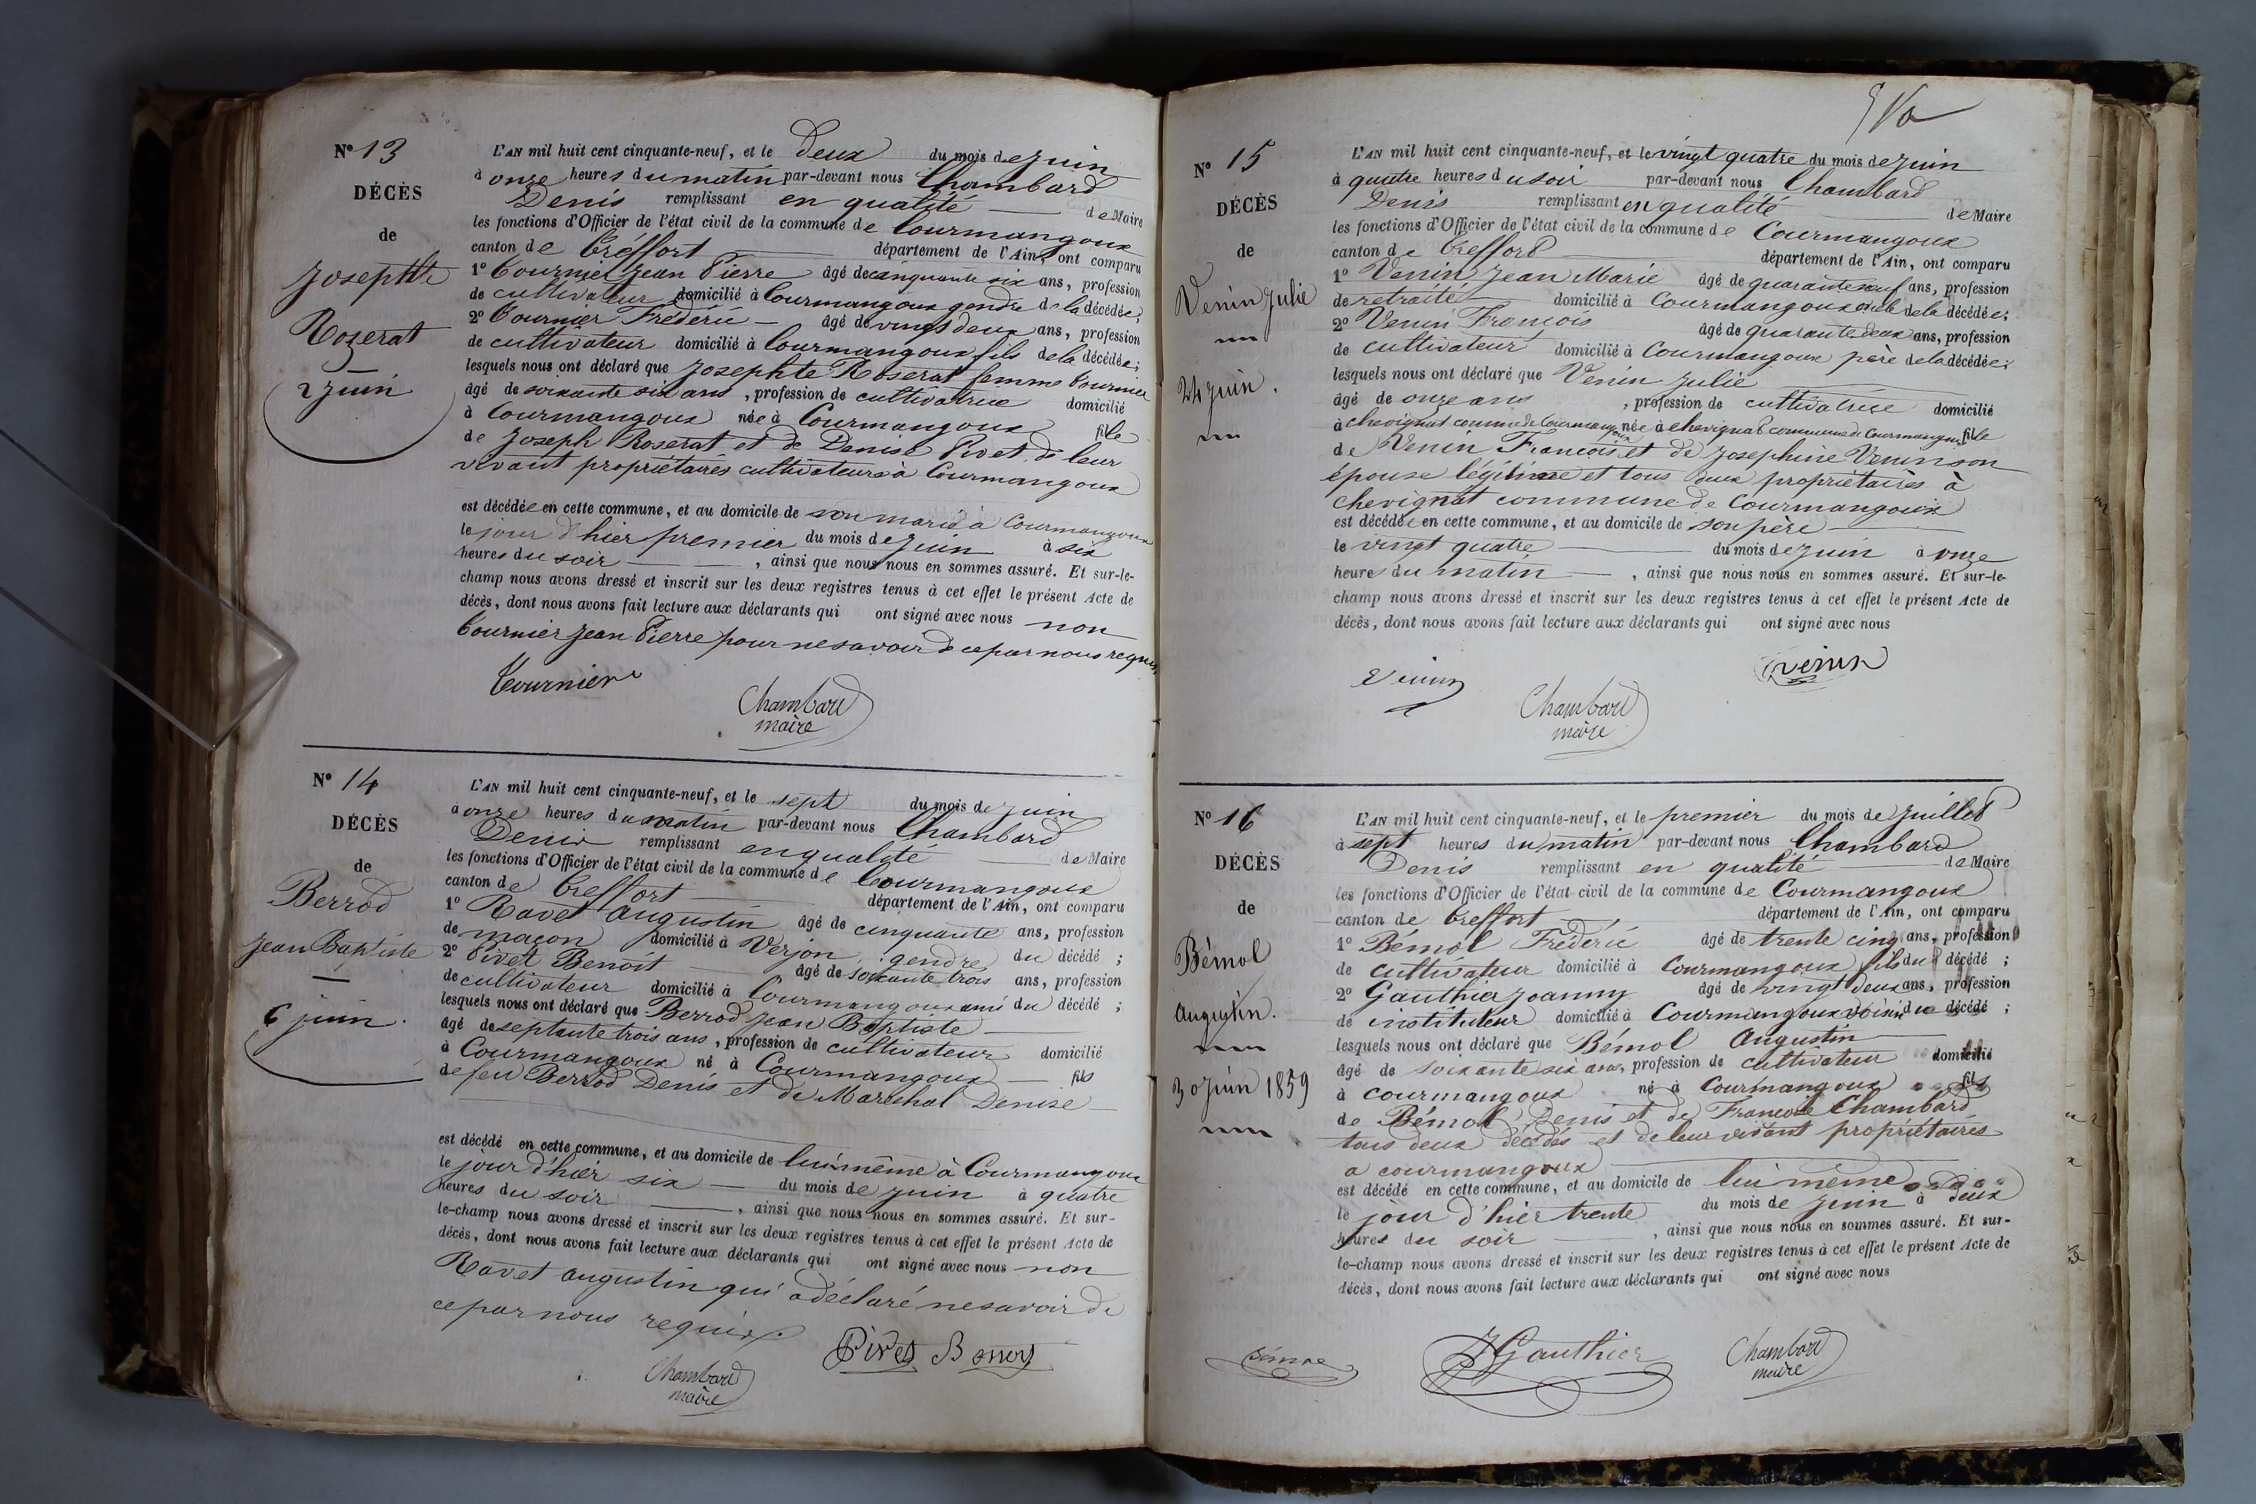 Nº 13
DÉCÈS
de
Josephte
Rozerat
2 juin
L'AN mil huit cent cinquante-neuf, et le deux du mois de juin
à onze heures du matin par-devant nous Chambard
Denis remplissant en qualité de Maire
les fonctions d'Officier de l'état civil de la commune de Courmangoux
canton de Treffort département de l'Ain, ont comparu
1º Tournier Jean Pierre âgé de cinquante six ans, profession
de cultivateur domicilié à Courmangoux gendre de la décédée;
2º Tournier Fréderic âgé de vingt deux ans, profession
de cultivateur domicilié à Courmangoux fils de la décédée;
lesquels nous ont déclaré que Josephte Roserat femme Tournier
âgé de soixante six ans, profession de cultivatrice domicilié
à Courmangoux née à Courmangoux fille
de Joseph Roserat et de Denise Pivet de leur
vivant propriétaires cultivateurs à Courmangoux
est décédée en cette commune, et au domicile de son marié à Courmangoux
le jour d'hier premier du mois de juin à six
heures du soir, ainsi que nous nous en sommes assuré. Et sur-le-
champ nous avons dressé et inscrit sur les deux registres tenus à cet effet le présent Acte de
décès, dont nous avons fait lecture aux déclarants qui ont signé avec nous non
Tournier Jean Pierre pour ne savoir de ce par nous requis
Tournier
Chambard
maire
Nº 14
DÉCÈS
de
Berrod
Jean Baptiste
6 juin.
L'AN mil huit cent cinquante-neuf, et le sept du mois de juin
à onze heures du matin par-devant nous Chambard
Denis remplissant en qualité de Maire
les fonctions d'Officier de l'état civil de la commune de Courmangoux
canton de Treffort département de l'Ain, ont comparu
1º Ravet Augustin âgé de cinquante ans, profession
de maçon domicilié à Verjon gendre du décédé;
2º Pivet Benoit âgé de soixante trois ans, profession
de cultivateur domicilié à Courmangoux ami du décédé;
lesquels nous ont déclaré que Berrod Jean Baptiste
âgé de septante trois ans, profession de cultivateur domicilié
à Courmangoux né à Courmangoux fils
de feu Berrod Denis et de Maréchal Denise
est décédé en cette commune, et au domicile de lui même à Courmangoux
le jour d'hier six du mois de juin à quatre
heures du soir, ainsi que nous nous en sommes assuré. Et sur-
le-champ nous avons dressé et inscrit sur les deux registres tenus à cet effet le présent Acte de
décès, dont nous avons fait lecture aux déclarants qui ont signé avec nous non
Ravet Augustin qui a déclaré ne savoir de
ce par nous requis.
Pivet
Chambard
maire
Nº 15
DÉCÈS
de
Venin Julie
24 juin.
L'AN mil huit cent cinquante-neuf, et le vingt quatre du mois de juin
à quatre heures du soir par-devant nous Chambard
Denis remplissant en qualité de Maire
les fonctions d'Officier de l'état civil de la commune de Courmangoux
canton de Treffort département de l'Ain, ont comparu
1º Venin Jean Marie âgé de quarante neuf ans, profession
de retraité domicilié à Courmangoux oncle de la décédée;
2º Venin François âgé de quarante deux ans, profession
de cultivateur domicilié à Courmangoux père de la décédée;
lesquels nous ont déclaré que Venin Julie
âgé de onze ans, profession de cultivatrice domicilié
à chevignat commune de Courmangoux née à chevignat commune de Courmangoux fille
de Venin François et de Josephine Venin son
épouse légitime et tous deux propriétaires à
chevignat commune de Courmangoux
est décédée en cette commune, et au domicile de son père
le vingt quatre du mois de juin à onze
heures du matin, ainsi que nous nous en sommes assuré. Et sur-le-
champ nous avons dressé et inscrit sur les deux registres tenus à cet effet le présent Acte de
décès, dont nous avons fait lecture aux déclarants qui ont signé avec nous
Venin
Venin
Chambard
maire
Nº 16
DÉCÈS
de
Bémol
Augustin.
30 juin 1859
L'AN mil huit cent cinquante-neuf, et le premier du mois de juillet
à sept heures du matin par-devant nous Chambard
Denis remplissant en qualité de Maire
les fonctions d'Officier de l'état civil de la commune de Courmangoux
canton de Treffort département de l'Ain, ont comparu
1º Bémol Fréderic âgé de trente cinq ans, profession
de cultivateur domicilié à Courmangoux fils du décédé;
2º Gauthier Joanny âgé de vingt deux ans, profession
de instituteur domicilié à Courmangoux voisin du décédé;
lesquels nous ont déclaré que Bémol Augustin
âgé de soixante six ans, profession de cultivateur domicilié
à courmangoux né à Courmangoux fils
de Bémol Denis et de Françoise Chambard
tous deux décédés et de leur vivant propriétaires
a courmangoux
est décédé en cette commune, et au domicile de lui même
le jour d'hier trente du mois de juin à deux
heures du soir, ainsi que nous nous en sommes assuré. Et sur-
le-champ nous avons dressé et inscrit sur les deux registres tenus à cet effet le présent Acte de
décès, dont nous avons fait lecture aux déclarants qui ont signé avec nous
Bémol
JGauthier
Chambard
maire